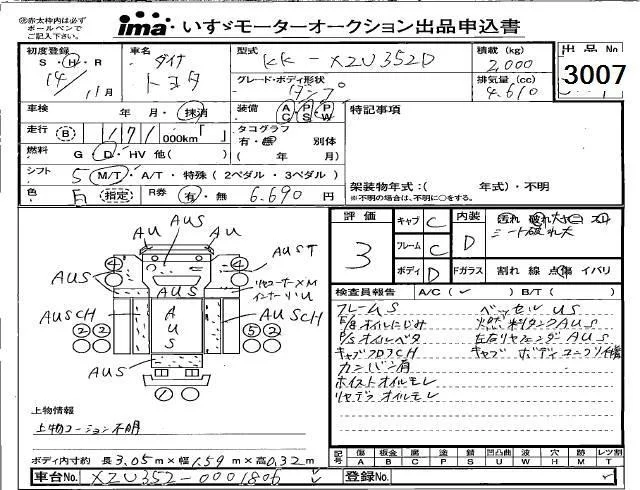 ㊟赤太枠内は必ず
ボールペンで
ご記入下さい。
ima いすゞモーターオークション出品申込書
初度登録 車名 型式 積載(kg) 出品No.
S・H・R ダイナ KK-XZU352D 2,000 3007
14/11月 トヨタ グレード・ボディ形状 排気量(cc)
ダンプ 4,610
車検 年 月・抹消 装備 AC PS PW 特記事項
走行 B 171 000km「 」 タコグラフ
有・無 別体
燃料 G・D・HV 他( ) ( 年 月)
シフト 5 M/T・A/T・特殊(2ペダル・3ペダル) 架装物年式:( 年式)・不明
※不明の場合は、不明に○をする。
色 白 指定 R券 有・無 6,690円
評価 キャブ C 内装 汚れ 破れ大
3 フレーム C D シート破れ大
ボディ D Fガラス 割れ 線 点傷 イバリ
AUS
AU AU
4 4 AUST
AUS AUS
AUSCH AUS AUSCH
2 2 5 2
AUS
検査員報告 A/C(✓) B/T( )
フレームS ベッセルUS
E/Bオイルにじみ 燃料タンクAUS
P/Sオイルベタ 左右リヤフェンダAUS
キャブフロアCH
カンバン有
ホイストオイルモレ
リヤデフオイルモレ
上物情報
上物コーション不明
ボディ内寸約 長3.05m×幅1.59m×高0.32m
記号 傷 板金 腐 塗 錆 凹凸曲 波 穴 跡 レツ割
A B C P S U W H M T
車台No. XZU352-0001806 登録No.